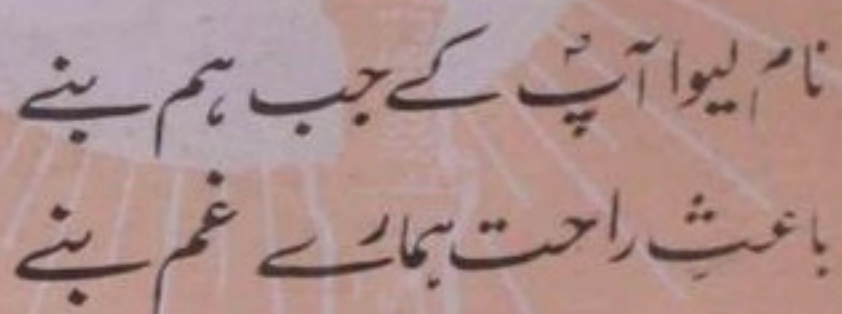 نام لیوا آپؐ کے جب ہم بنے
باعثِ راحت ہمارے غم بنے